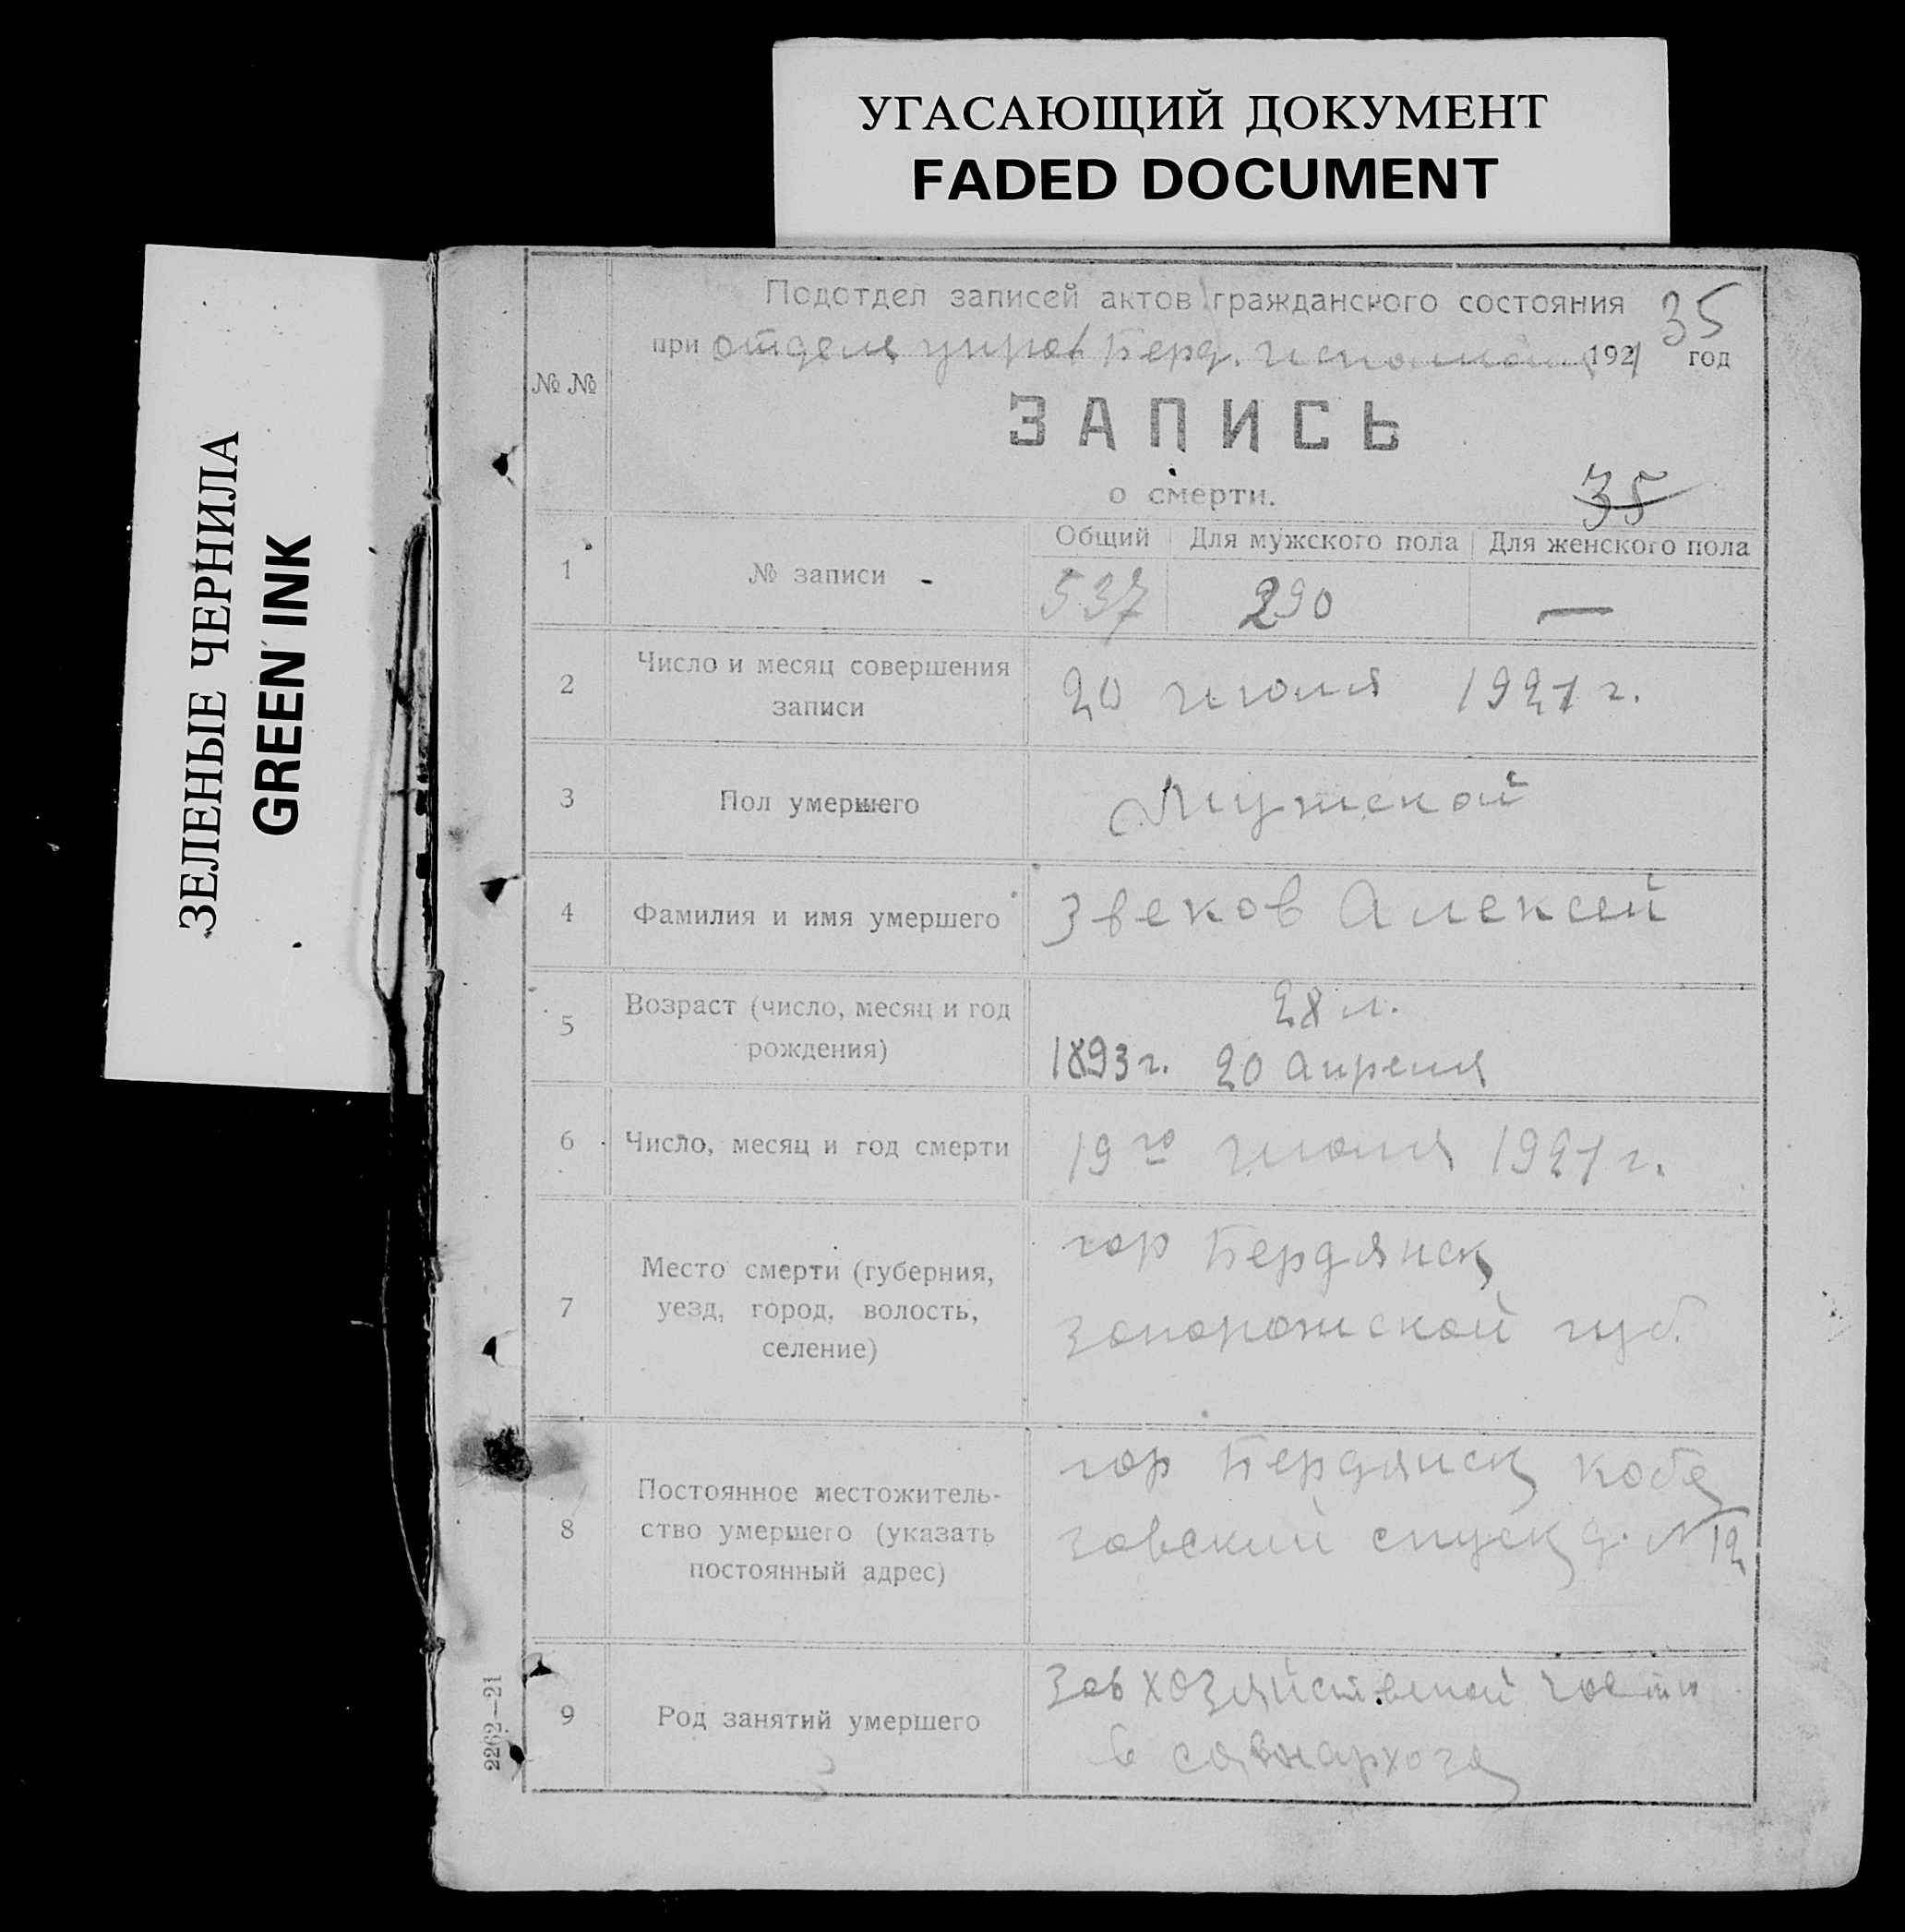 УГАСАЮЩИЙ ДОКУМЕНТ
FADED DOCUMENT
ЗЕЛЕНЫЕ ЧЕРНИЛА
GREEN INK
Подотдел записей актов гражданского состояния 35
при отделе управ Берд. 1921 год
№ №
ЗАПИСЬ
о смерти.
35
Общий Для мужского пола Для женского пола
1 № записи 537 290 —
2 Число и месяц совершения
записи
20 июля 1921 г.
3 Пол умершего Мужской
4 Фамилия и имя умершего Звеков Алексей
5 Возраст (число, месяц и год
рождения)
28 л.
1893 г. 20 апреля
6 Число, месяц и год смерти 19го июля 1921 г.
7 Место смерти (губерния,
уезд, город, волость,
селение)
гор Бердянск
Запорожской губ.
8 Постоянное местожитель-
ство умершего (указать
постоянный адрес)
гор Бердянск
спуск д. № 12
9 Род занятий умершего
Зав хозяйственной части
в совнархозе
2262—21